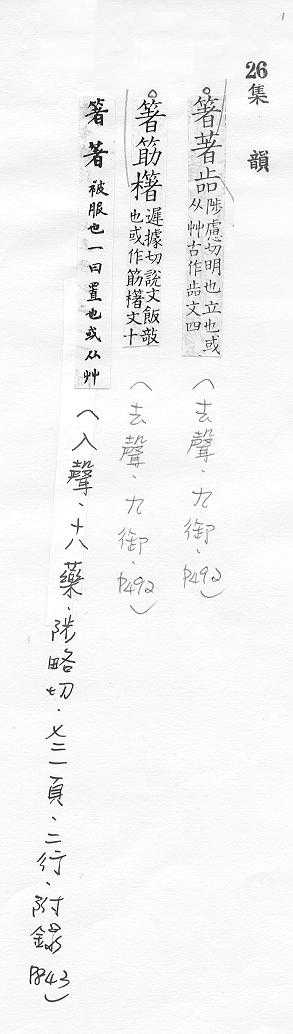 1
26
集韻
箸著㞢陟慮切明也立也或从艸古作㞢文四(去聲.九御.P492)
箸筯櫡遲據切說文飯敧也或作筯櫡文十(去聲.九御.P492)
箸著被服也一曰置也或从艸(入聲.十八藥.陟略切.七二一頁.二行.附錄P843)